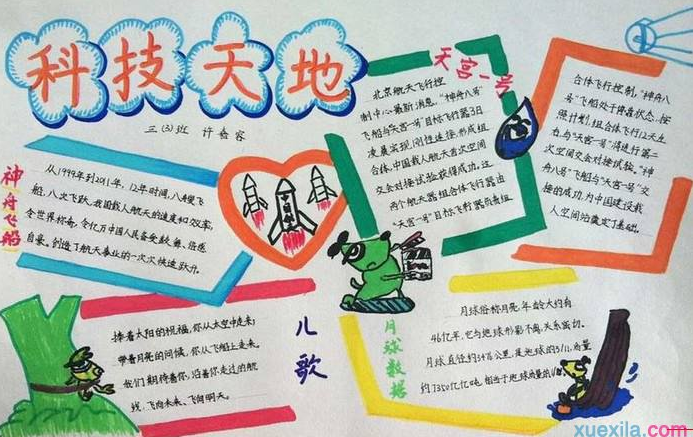 科技天地
三(3)班 许春容
神舟飞船
从1999年到2011年，12年时间，八艘飞
船，八次飞跃，我国载人航天的速度和效率，
令世界称奇，令亿万中国人民备受鼓舞、倍感
自豪。创造了航天事业的一次次快速跃升。
天宫一号
北京航天飞行控
制中心最新消息，"神舟八号"
飞船与"天宫一号"目标飞行器3日
凌晨实现刚性连接，形成组
合体，中国载人航天首次空间
交会对接试验获得成功。这
两个航天器组合体飞行器由
"天宫一号"目标飞行器负责组
合体飞行控制，"神舟八
号"飞船处于停靠状态。按
照计划，组合体飞行12天左
右与"天宫一号"将进行第二
次空间交会对接试验。"神
舟八号"飞船与"天宫一号"交
接的成功，为中国建设载
人空间站奠定了基础。
儿歌
捧着太阳的祝福，你从太空中走来；
带着月亮的问候，你从飞船上走来。
我们期待着你，沿着你走过的航
线，飞向未来、飞向明天。
月球数据
月球俗称月亮，年龄大约有
46亿年，它与地球形影不离，关系密切。
月球直径约3476公里，是地球的3/11，质量
约7350亿亿吨，相当于地球质量的1/
xuexila.com